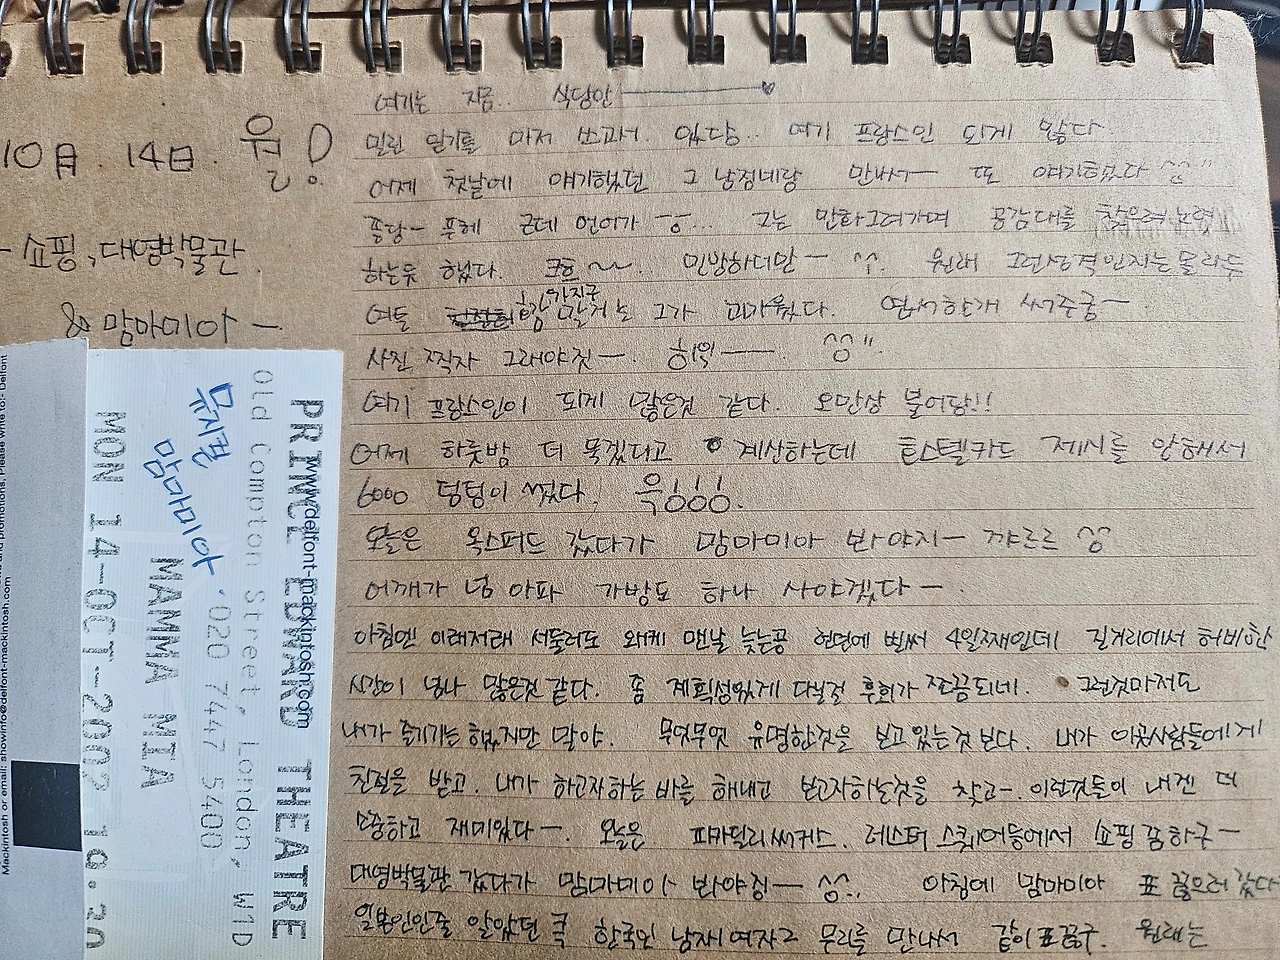 10月. 14日. 월!
- 쇼핑, 대영박물관.
& 맘마미아 —
여기는 지금.. 식당안
밀린 일기를 마저 쓰고서. 있당.. 여기 프랑스인 되게 많다
어제 첫날에 얘기했던 그 남정네랑 만나서— 또 얘기했다 ^^"
퐁당- 푸헤 근데 언어가 ... 그는 만화그려가며 공감대를
하는듯 했다. 크흐 ~~. 민방하더만— ^^. 원래 그런성격인지는 몰라두
여튼 그가 귀가웠다. 엽서한개 써주궁—
사진 찍자 그래야짓—. 히익—— ^^".
여기 프랑스인이 되게 많은것 같다. 오만상 불어당!!
어제 하룻밤 더 묵겠다고 계산하는데 호스텔카드 제시를 안해서
6000 덩텅이 썼다. 윽!!!.
오늘은 옥스퍼드 갔다가 맘마미아 봐야지— 꺄르르 ^^
어깨가 넘 아파 가방도 하나 사야겠다—.
아침엔 이래저래 서둘러도 왜케 맨날 늦는공 런던에 벌써 4일째인데 길거리에서 허비한
시간이 넘나 많은것 같다. 좀 계획성있게 다닐걸 후회가 쪼끔되네. 그런것마저도
내가 즐기기는 했지만 말야. 무엇무엇 유명한것을 보고 있는것 보다. 내가 이곳사람들에게
친절을 받고. 내가 하고자하는 바를 해내고 보고자하는것을 찾고-. 이런것들이 내겐 더
소중하고 재미있다—. 오늘은 피카딜리써커스. 레스터 스퀘어등에서 쇼핑 좀 하구—
대영박물관 갔다가 맘마미아 봐야징— ^^.. 아침에 맘마미아 표 끊으러 갔다
일본인인줄 알았던 한국인 남자1 여자2 무리를 만나서 같이 표끊구. 원래는
뮤지컬
맘마미아.
Old Compton Street, London, W1D
PRINCE EDWARD THEATRE
www.delfont-mackintosh.com
020 7447 5400
MAMMA MIA
MON 14-OCT-2002 19.30
Mackintosh or email: showinfo@delfont-mackintosh.com
and promotions, Please write to:- Delfont